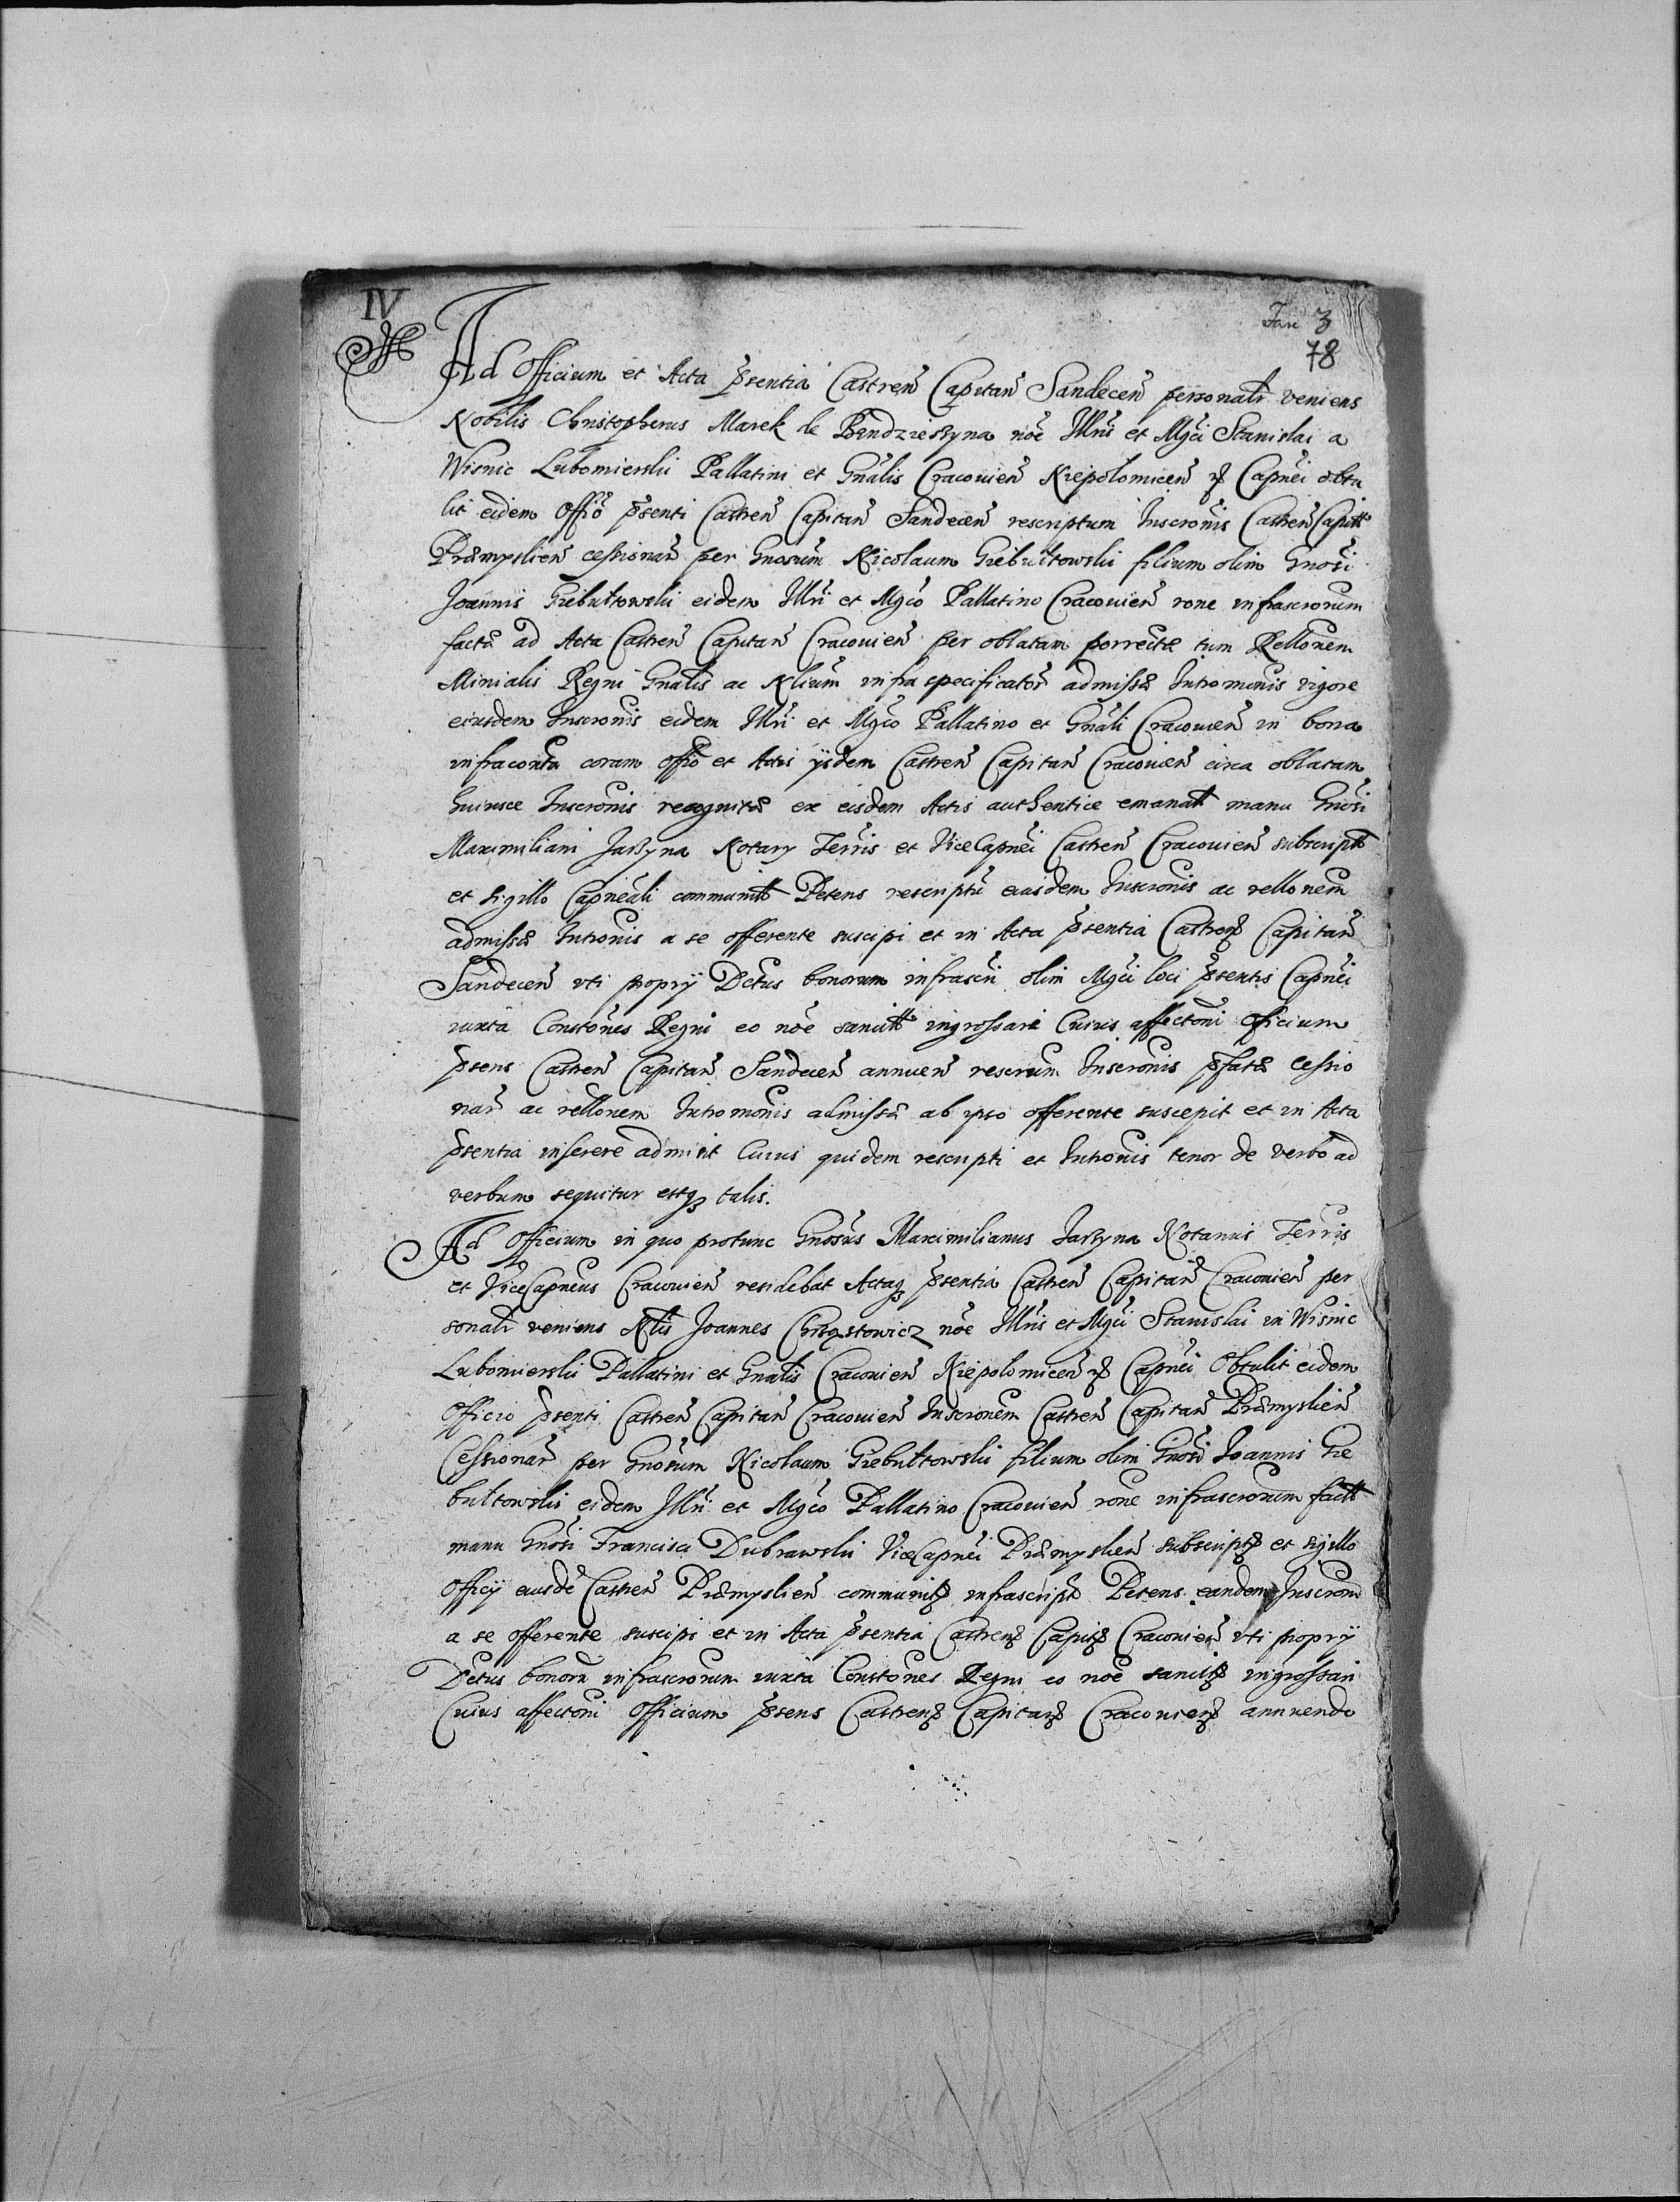 IV
Fasc 3
78
Ad Officium et Acta p̃sentia Castren̄ Capitan̄ Sandecen̄ personalr̄ veniens
Nobilis Christopherus Marek de Bendzieszyna nōe Illrīs et Mgci Stanislai a
Wisnic Lubomierskii Pallatini et Gnālis Cracouien̄ Niepolomicen̄ Capnei obtu
lit eidem Offō p̃senti Castren̄ Capitan̄ Sandecen̄ rescriptum Inscrōnis Castren̄ Capitt
Præmyslien̄ cessionar̄ per Gnosum Nicolaum Giebułtowskii filium olim Gnosi
Joannis Giebułtowskii eidem Illrī et Mgco Pallatino Cracouien̄ rōne infrascrorum
factæ ad Acta Castren̄ Capitan̄ Cracouien̄ per oblatam porrectæ tum Rellōnem
Minialis Regni Gnālis ac Nlium infra specificator̄ admissæ Intromīnis vigore
eiusdem Inscrōnis eidem Illrī et Mgco Pallatino et Gnāli Cracouien̄ in bona
infraconta coram offō et Actis ijsdem Castren̄ Capitan̄ Cracouien̄ circa oblatam
huiusce Inscrōnis recognitæ ex eisdem Actis authentice emanatt manu Gnosi
Maximiliani Jarzyna Notarÿ Terrīs et ViceCapnei Castren̄ Cracouien̄ subscriptt
et sigillo Capneali communitt Petens rescriptū eiusdem Inscrōnis ac rellōnem
admissæ Intrōnis a se offerente suscipi et in Acta p̃sentia Castren̄ Capitan̄
Sandecen̄ vti propriÿ Dctus bonorum infrascri olim Mgci loci p̃sentis Capnei
iuxta Constōnes Regni eo nōe sancitt ingrossari Cuius affectōni Officium
p̃sens Castren̄ Capitan̄ Sandecen̄ annuen̄ rescrum Inscrōnis p̃fatæ Cessio
nar̄ ac rellōnem Intromōnis admissæ ab ipso offerente suscepit et in Acta
p̃sentia inserere admisit Cuius quidem rescripti et Intrōnis tenor de verbo ad
verbum sequitur estqȝ talis.
Ad Officium in quo protunc Gnosus Maximilianus Jarzyna Notarius Terrīs
et ViceCapneus Cracouien̄ residebat Actaqȝ p̃sentia Castren̄ Capitan̄ Cracouien̄ per
sonalr̄ veniens Nlis Joannes nōe Illrīs et Mgci Stanislai in Wisnic
Lubomierskii Pallatini et Gnālis Cracouien̄ Niepolomicen̄ Capnei Obtulit eidem
Officio p̃senti Castren̄ Capitan̄ Cracouien̄ Inscrōnem Castren̄ Capitan̄ Præmyslien̄
Cessionar̄ per Gnosum Nicolaum Giebułtowskii filium olim Gnosi Joannis Gie
bułtowskii eidem Illrī et Mgco Pallatino Cracouien̄ rōne infrascrorum factt
manu Gnosi Francisci Dubrawskii ViceCapnei Præmyslien̄ subscriptȝ et sigillo
Officÿ eiusdē Castren̄ Præmyslien̄ communitȝ infrascript Petens eandem Inscrōm
a se offerente suscipi et in Acta p̃sentia Castrenȝ Capitȝ Cracouien̄ vti propriÿ
Dctus bonorū infrascrorum iuxta Constōnes Regni eo nōe sancitȝ ingrossari
Cuius affectōni Officium p̃sens Castrenȝ Capitanȝ Cracouienȝ annuendo